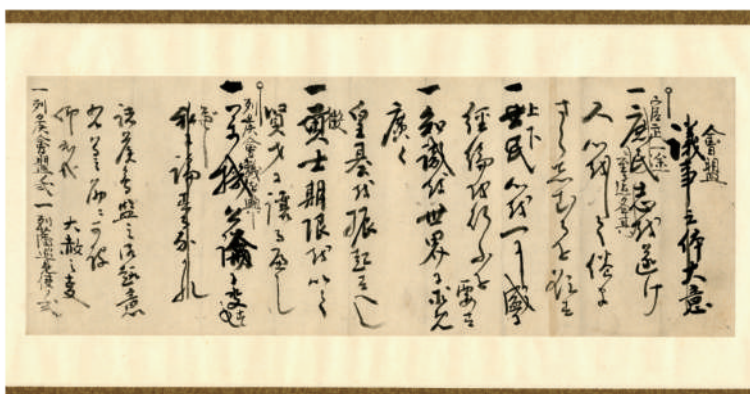 會盟
議事之体大意
官武一途
一庶民志を遂け
至迄各其
人心をして倦ま
さらしむるを欲す
上下
一士民心を一にし盛に
経綸を行ふを要す
一知識を世界に求め
廣く
皇基を振起すへし
徴
一貢士期限を以て
賢才に譲るへし
列侯會議を興し
一萬機公論に決し
私に論するなかれ
諸侯會盟之御趣意
右等之筋に可被
仰出哉 大赦之事
一列侯會盟之式 一列藩巡見使之式